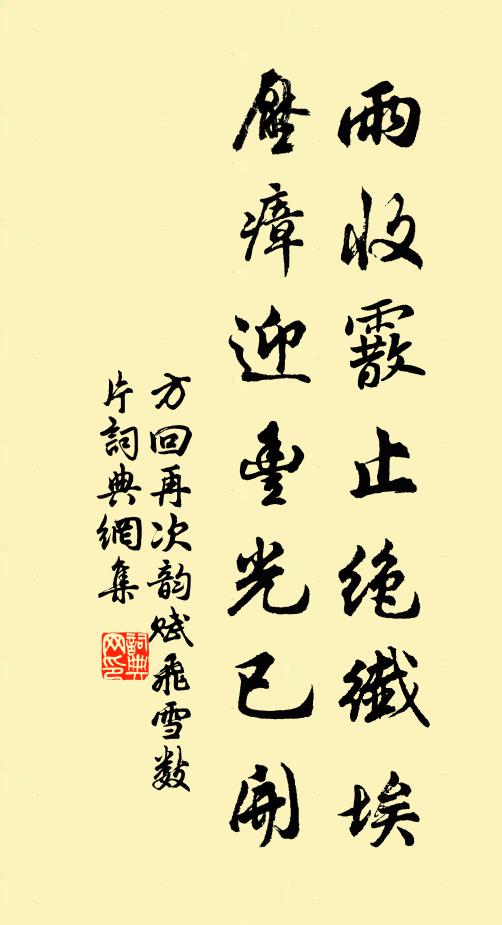 雨收霰止絶纖埃
壓瘴迎豐光已開
方回再次韵赋飛雪数
片詞典網集
詞典网印